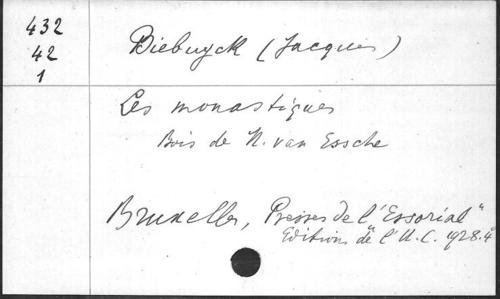 432
42
1
Biebuyck (Jacques)
Les monastiques
Bois de N. van Essche
Bruxelles, Presses de l'"Essorial"
Editions de "l'U.C. 1928. 4°